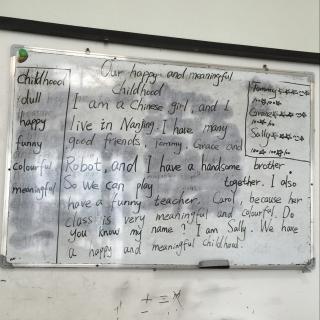 Our happy and meaningful
Childhood
childhood
dull
happy
funny
colourful
meaningful
I am a Chinese girl, and I
live in Nanjing. I have many
good friends, Tommy, Grace and
Robot, and I have a handsome brother.
So we can play together. I also
have a funny teacher. Carol, because her
class is very meaningful and colourful. Do
you know my name? I am Sally. We have
a happy and meaningful childhood.
Tommy
Grace
Sally